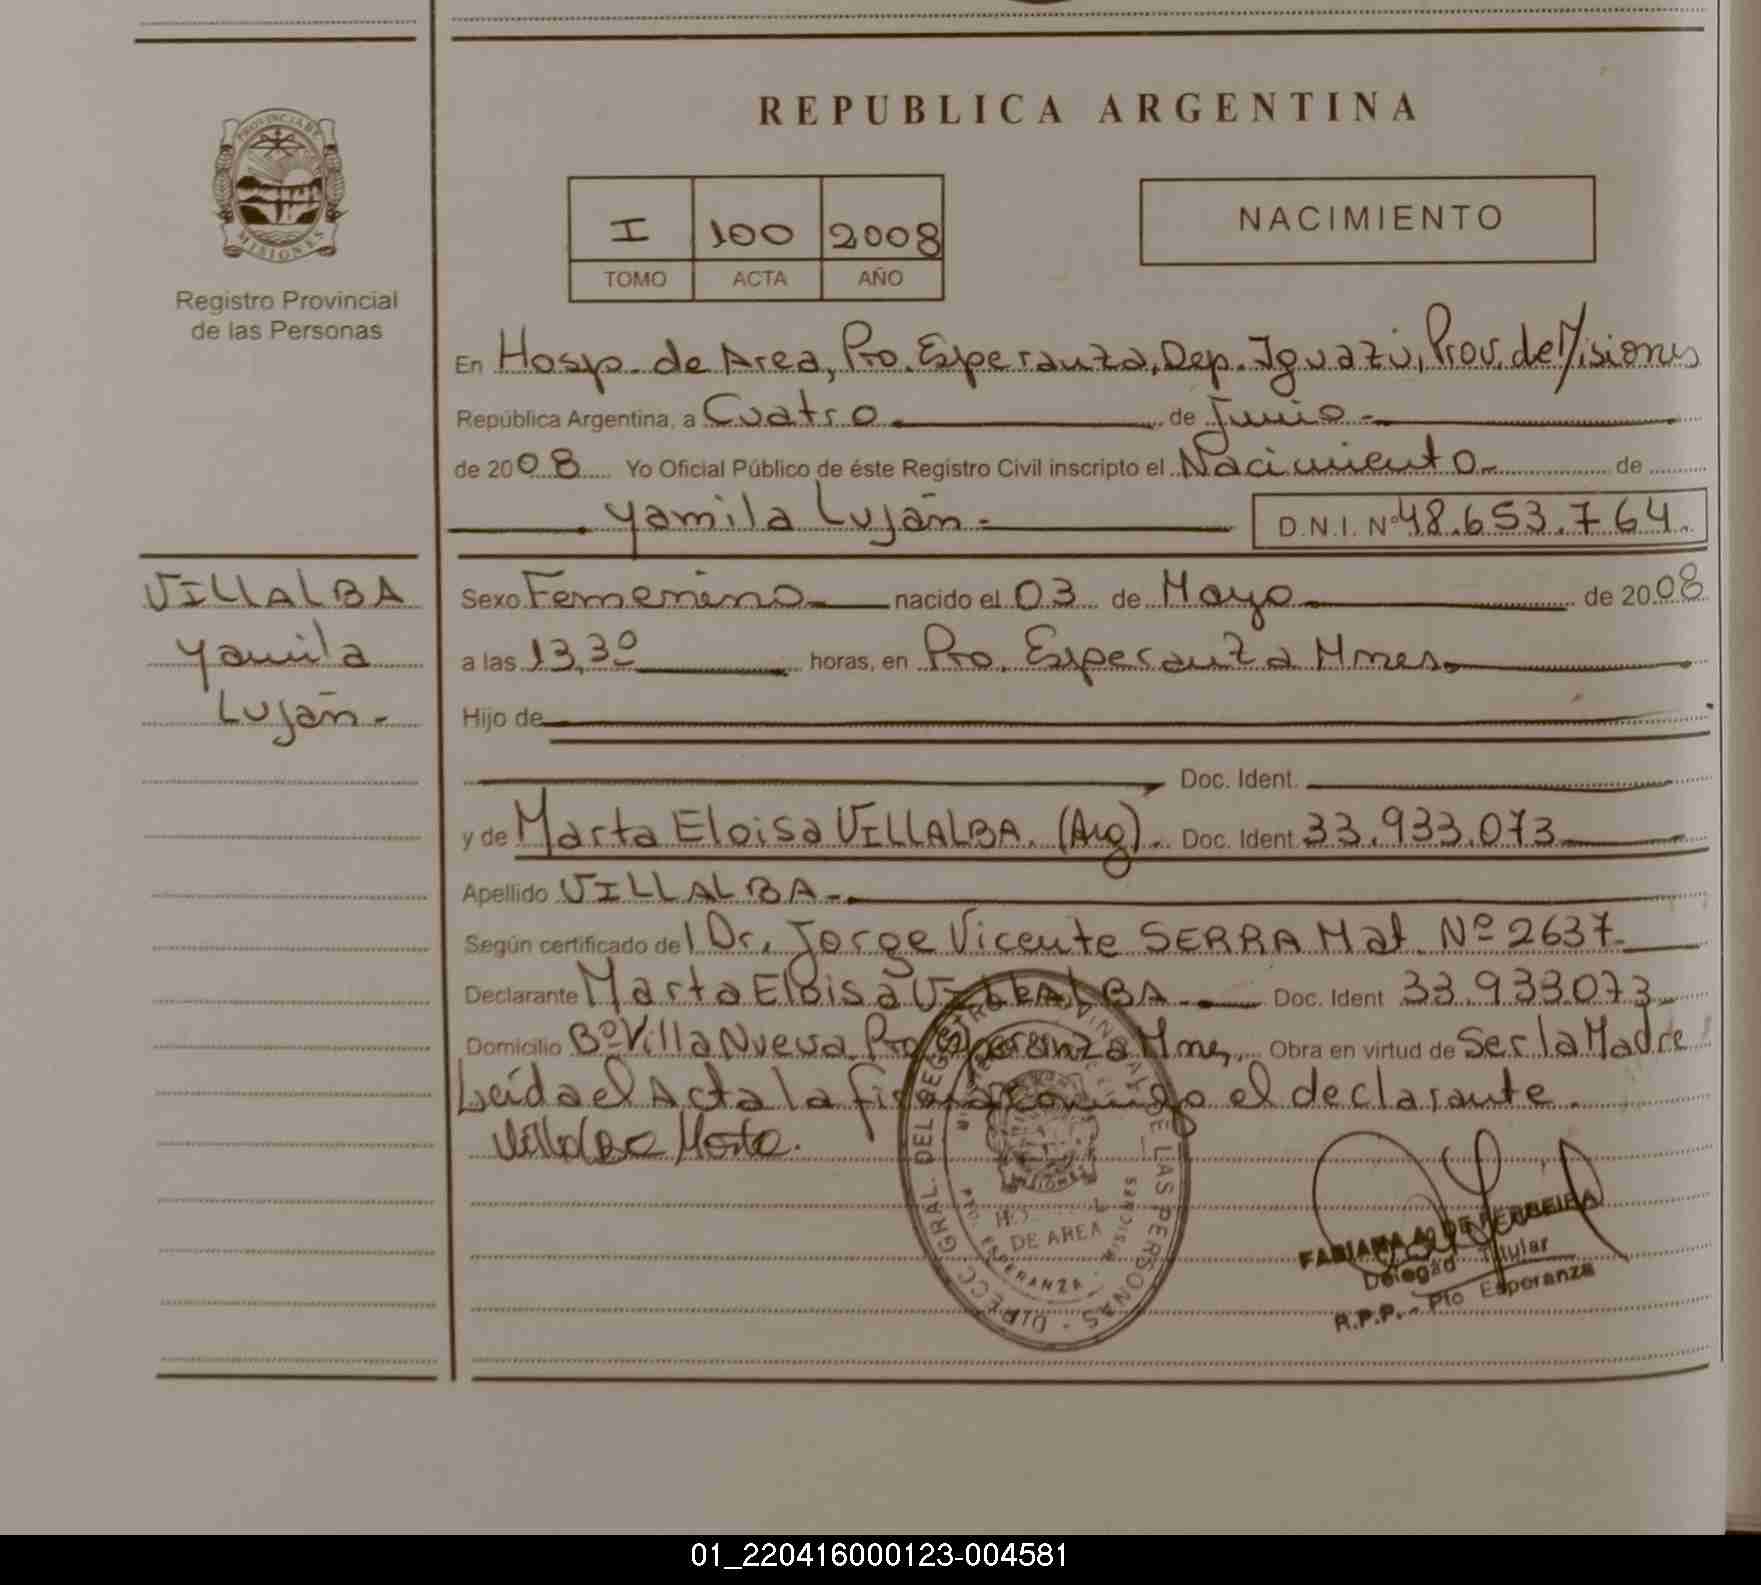 REPUBLICA ARGENTINA
PROVINCIA DE MISIONES
Registro Provincial
de las Personas
I 100 2008
TOMO ACTA AÑO
NACIMIENTO
En Hosp. de Area, Pto. Esperanza, Dep. Iguazú, Prov. de Misiones
República Argentina, a Cuatro de Junio.-
de 2008 Yo Oficial Público de éste Registro Civil inscripto el Nacimiento de
Yamila Luján.- D.N.I. Nº 48.653.764.
VILLALBA
Yamila
Luján.-
Sexo Femenino nacido el 03 de Mayo de 2008
a las 13,30 horas, en Pto. Esperanza Mnes.
Hijo de
Doc. Ident.
y de Marta Eloisa VILLALBA. (Arg). Doc. Ident. 33.933.073
Apellido VILLALBA.-
Según certificado del Dr. Jorge Vicente SERRA Mat. Nº 2637
Declarante Marta Eloisa VILLALBA.- Doc. Ident 33.933.073
Domicilio Bº Villa Nueva. Pto. Esperanza Mnes. Obra en virtud de Ser la Madre
Leída el Acta la firma conmigo el declarante.
Villalba Marta.
DIRECC. GRAL. DEL REGISTRO PROVINCIAL DE LAS PERSONAS
DE AREA
PTO. ESPERANZA - MISIONES
FABIANA A. DE FERREIRA
Delegad Titular
R.P.P. - Pto Esperanza
01_220416000123-004581